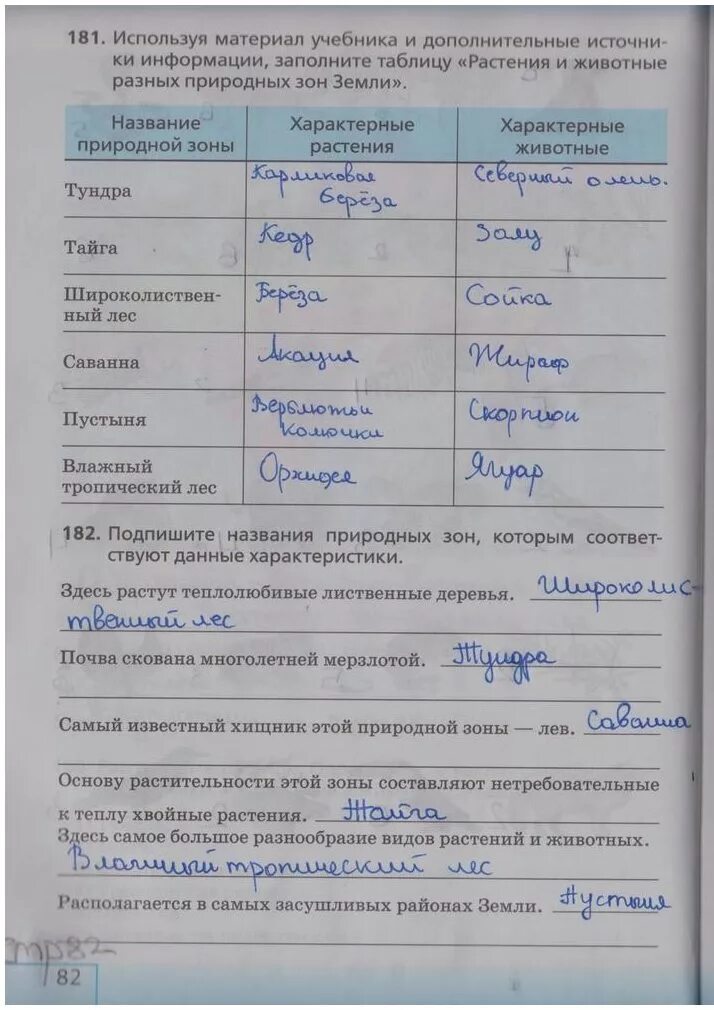 181. Используя материал учебника и дополнительные источни-
ки информации, заполните таблицу «Растения и животные
разных природных зон Земли».
Название природной зоны Характерные растения Характерные животные
Тундра Карликовая берёза Северный олень.
Тайга Кедр Заяц
Широколиствен-
ный лес Берёза Сойка
Саванна Акация Жираф
Пустыня Верблюжьи колючки Скорпион
Влажный
тропический лес Орхидея Ягуар
182. Подпишите названия природных зон, которым соответ-
ствуют данные характеристики.
Здесь растут теплолюбивые лиственные деревья. Широколис-
твенный лес
Почва скована многолетней мерзлотой. Тундра
Самый известный хищник этой природной зоны — лев. Саванна
Основу растительности этой зоны составляют нетребовательные
к теплу хвойные растения. Тайга
Здесь самое большое разнообразие видов растений и животных.
Влажный тропический лес
Располагается в самых засушливых районах Земли. Пустыня
стр82
82